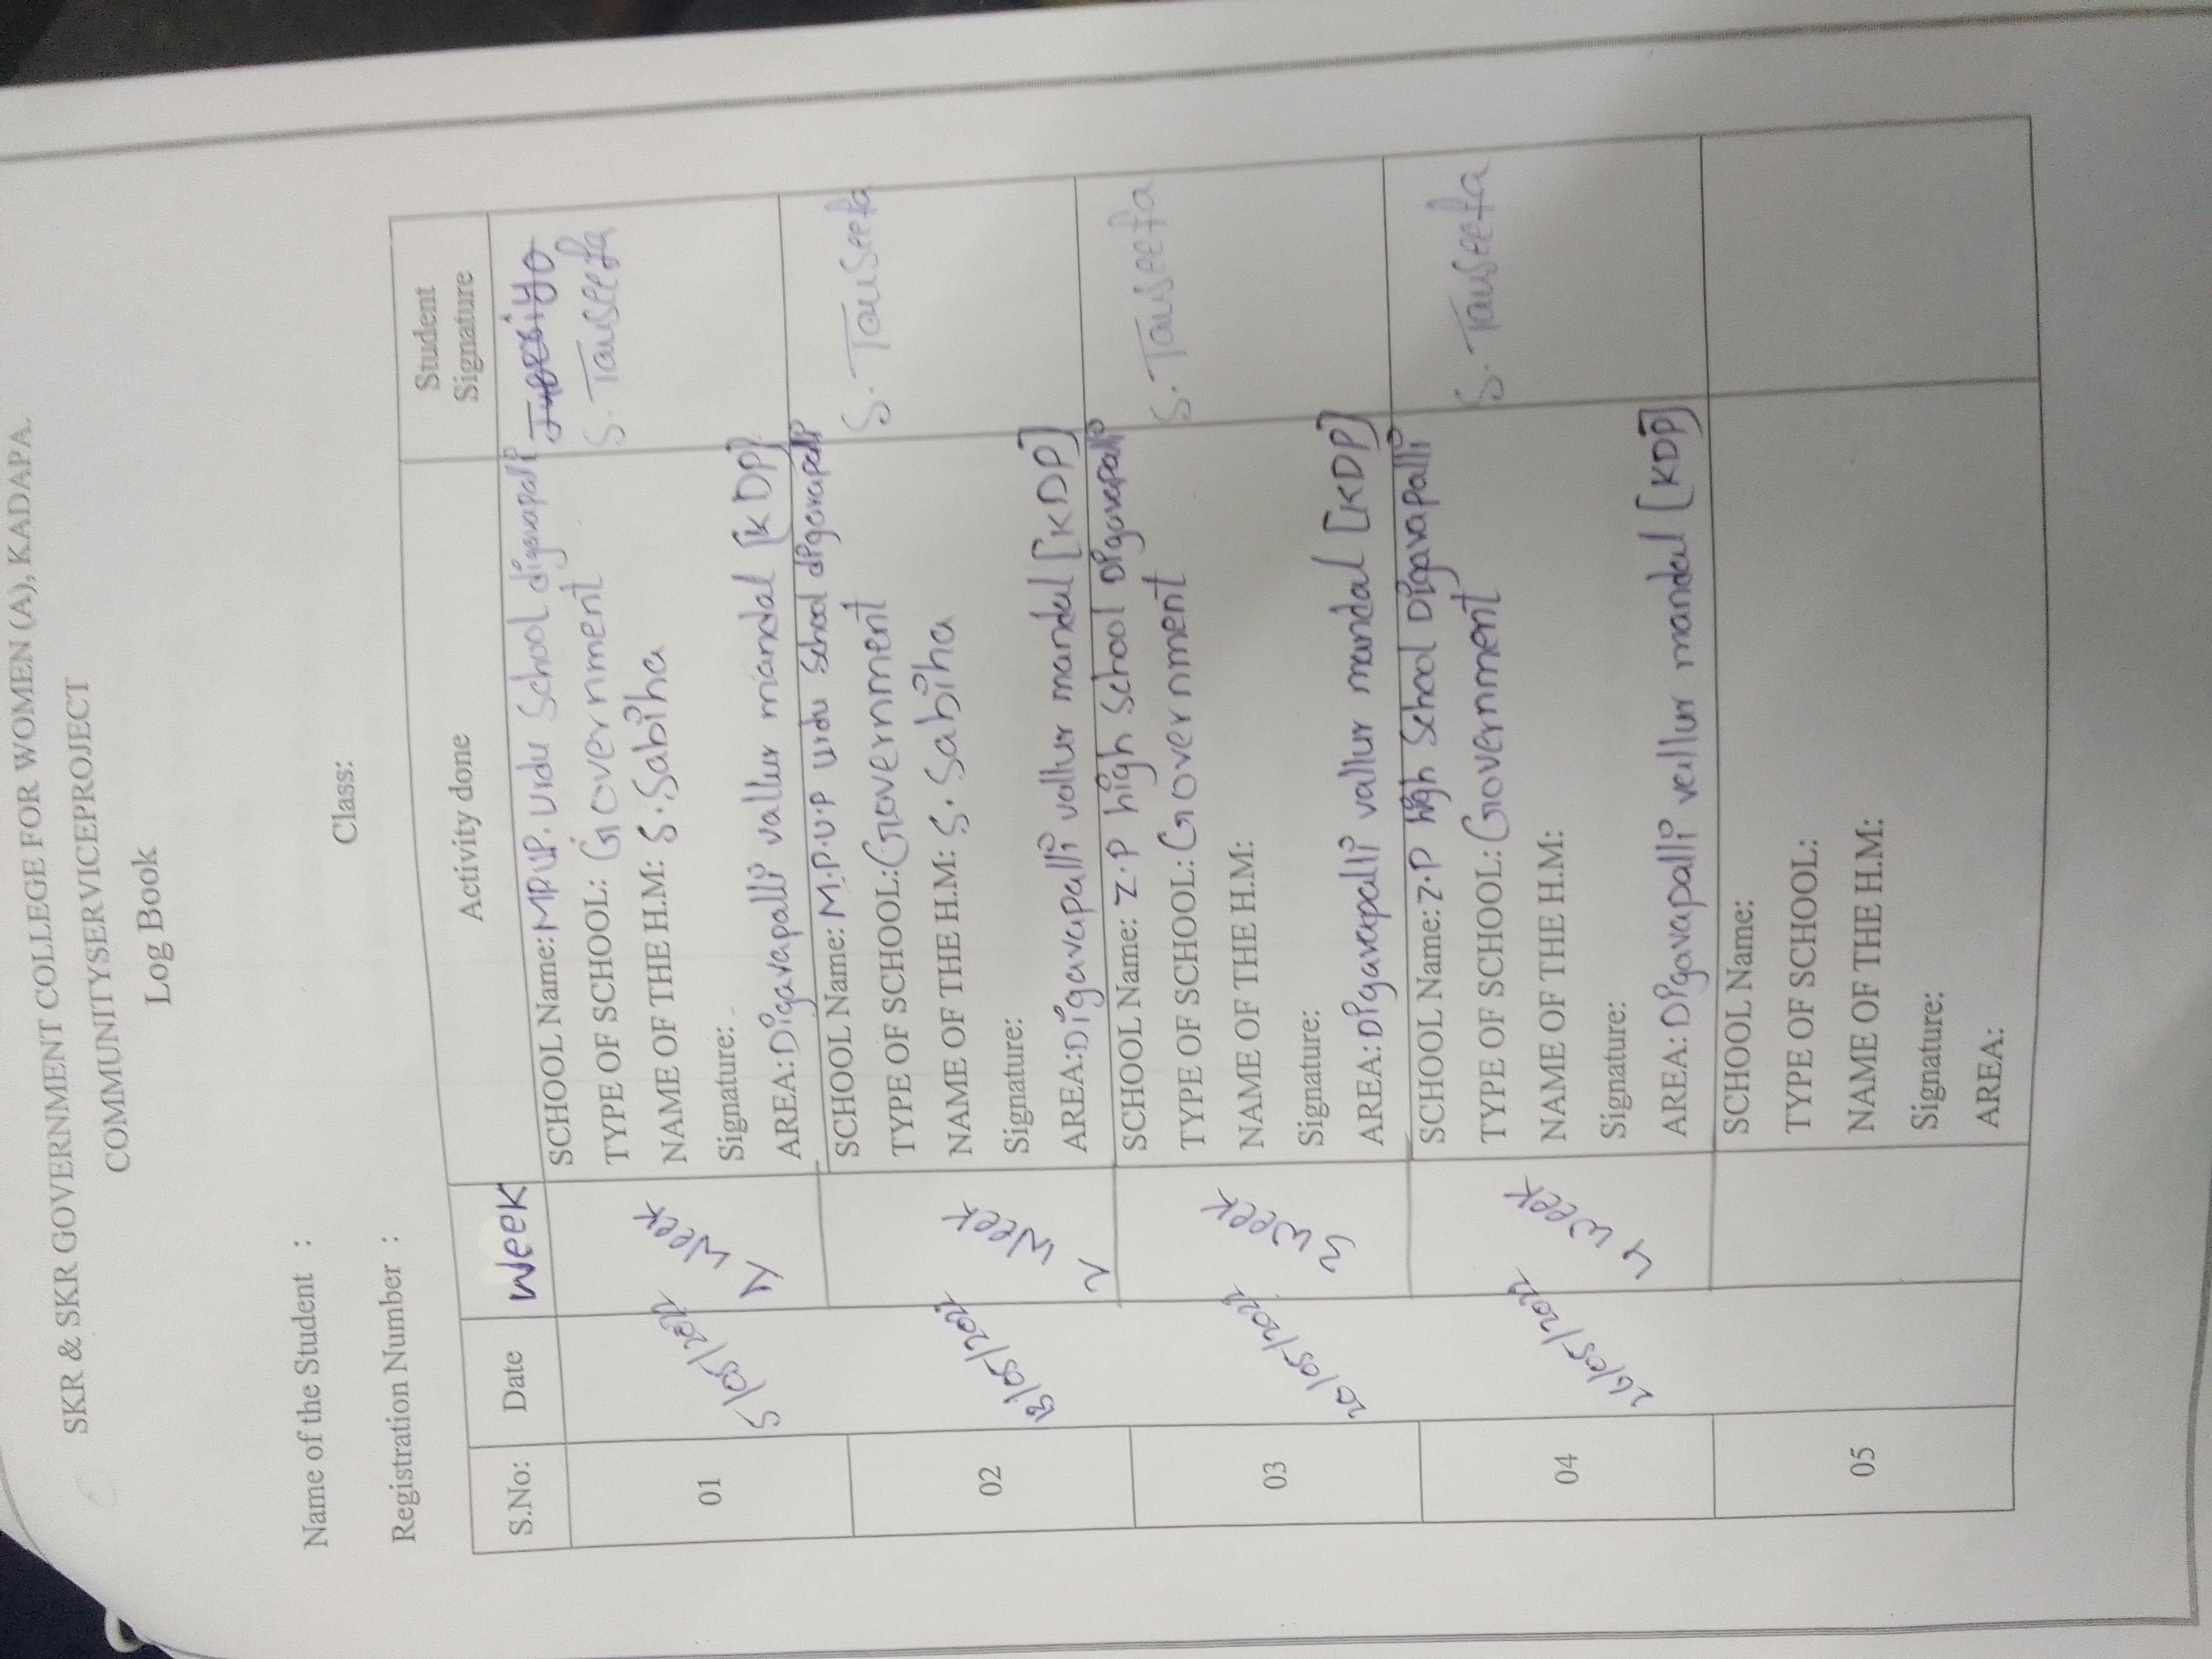 SKR & SKR GOVERNMENT COLLEGE FOR WOMEN (A), KADAPA.
COMMUNITYSERVICEPROJECT
Log Book
Name of the Student :
Class:
Registration Number :
S.No: Date Week Activity done Student Signature
01
5/05/202
week
SCHOOL Name: MPUP. Urdu School digavapalli
TYPE OF SCHOOL: Government
NAME OF THE H.M: S. Sabiha
Signature:
AREA: Digavapalli vallur mandal [KDP]
S. Tauseefa
02
13/05/202
2 week
SCHOOL Name: M.P.U.P urdu school digavapalli
TYPE OF SCHOOL: Government
NAME OF THE H.M: S. Sabiha
Signature:
AREA: Digavapalli vallur mandal [KDP]
S. Tauseefa
03
20/05/202
3 week
SCHOOL Name: Z.P high School Digavapalli
TYPE OF SCHOOL: Government
NAME OF THE H.M:
Signature:
AREA: Digavapalli vallur mandal [KDP]
S. Tauseefa
04
26/05/202
4 week
SCHOOL Name: Z.P high School Digavapalli
TYPE OF SCHOOL: Government
NAME OF THE H.M:
Signature:
AREA: Digavapalli vallur mandal [KDP]
S. Tauseefa
05
SCHOOL Name:
TYPE OF SCHOOL:
NAME OF THE H.M:
Signature:
AREA: